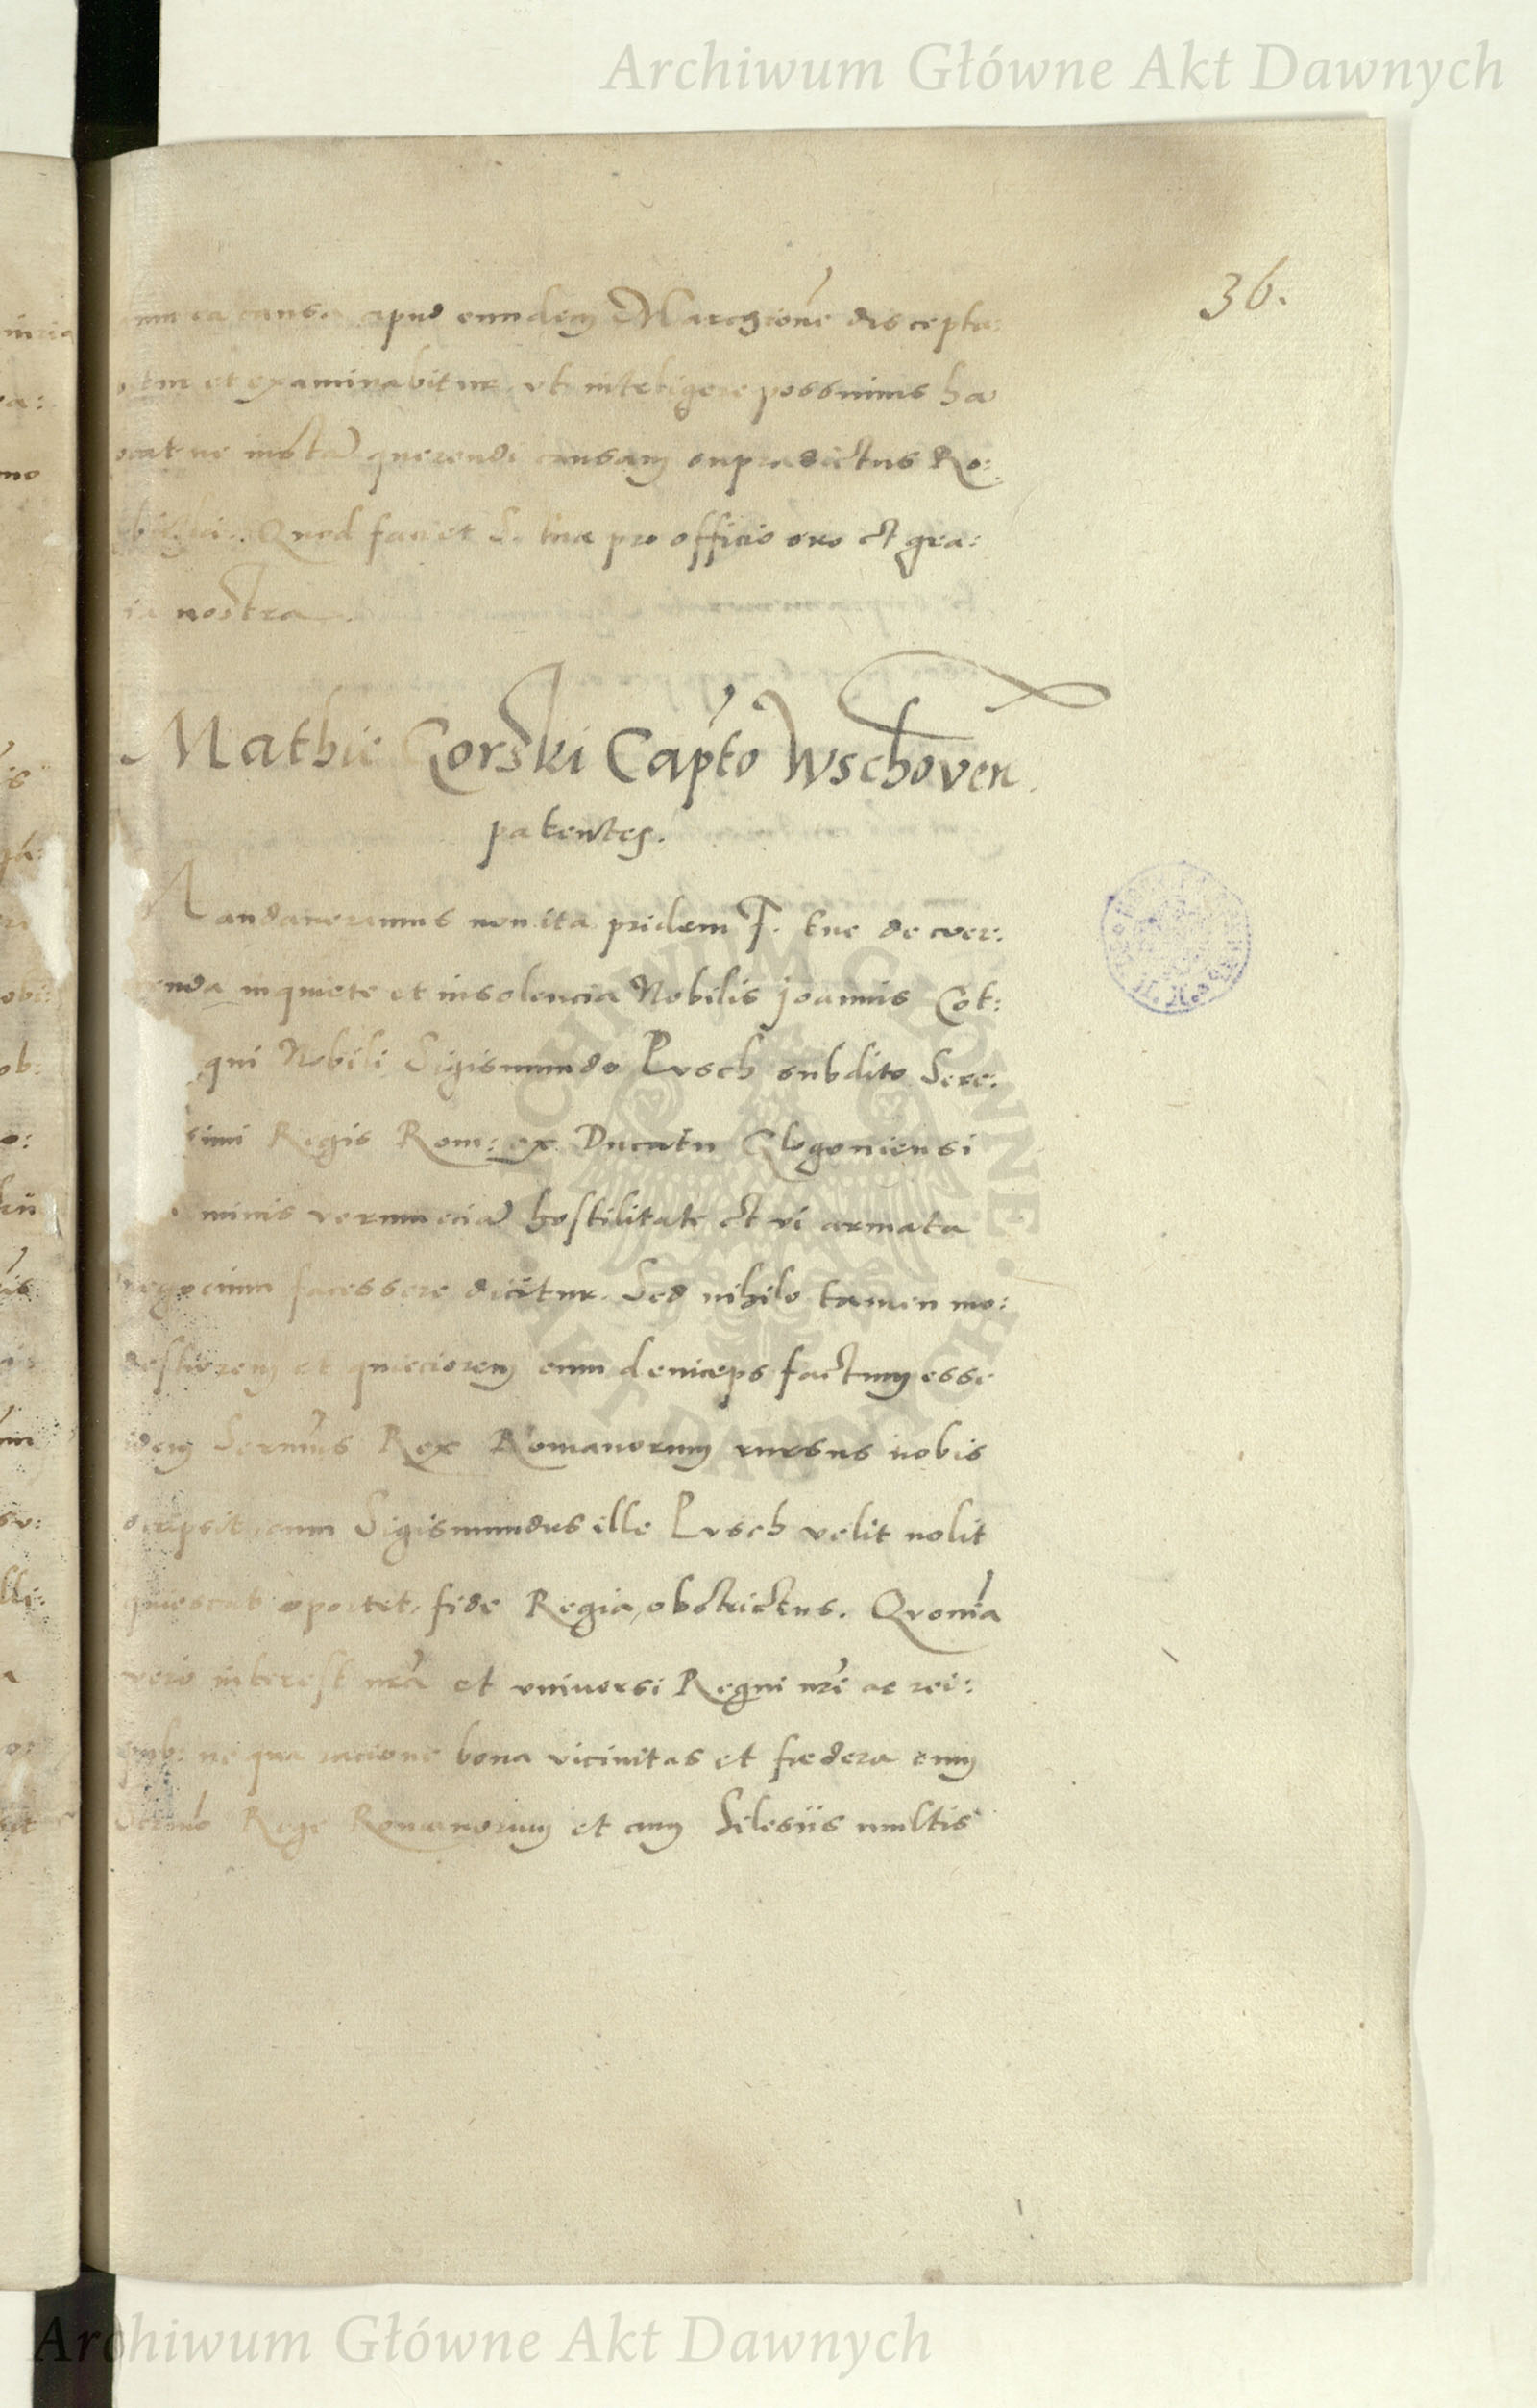 Archiwum Główne Akt Dawnych
36.
ea causa apud eundem Marchionē discepta:
et examinabitur, vt intelligere possimus ha
ne iustā querendi causam supradictus Ro:
Quod faciet S. tua pro officio suo et gra:
nostra.
Mathie Gorski Capto Wschoven.
patentes.
andaueramus non ita pridem F. tue de coer:
enda inquiete et insolencia Nobilis Joannis Cot:
qui Nobili Sigismundo Lusch subdito Sere:
simi Regis Rom: ex Ducatu Glogoniensi
minis verum eciā hostilitate et vi armata
negocium facessere dicitur. Sed nihilo tamen mo:
destiorem et quieciorem eum deinceps factum esse
idem Sermus Rex Romanorum rursus nobis
scripsit, cum Sigismundus ille Lusch velit nolit
quiescat oportet, fide Regia obstrictus. Quoniā
vero interest nrā et vniuersi Regni nrī ac rei:
pub: ne qua racione bona vicinitas et fœdera cum
Sermo Rege Romanorum et cum Silesiis multis
ARCHIWUM GŁÓWNE AKT DAWNYCH
Archiwum Główne Akt Dawnych